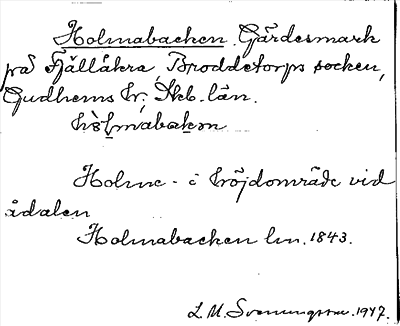 Holmabacken. Gärdesmark
på Fjällåkra, Broddetorps socken,
Gudhems hr, Skb. län.
Holme - i höjdområde vid
ådalen
Holmabacken lm. 1843.
L.M. Svenungsson. 1947.